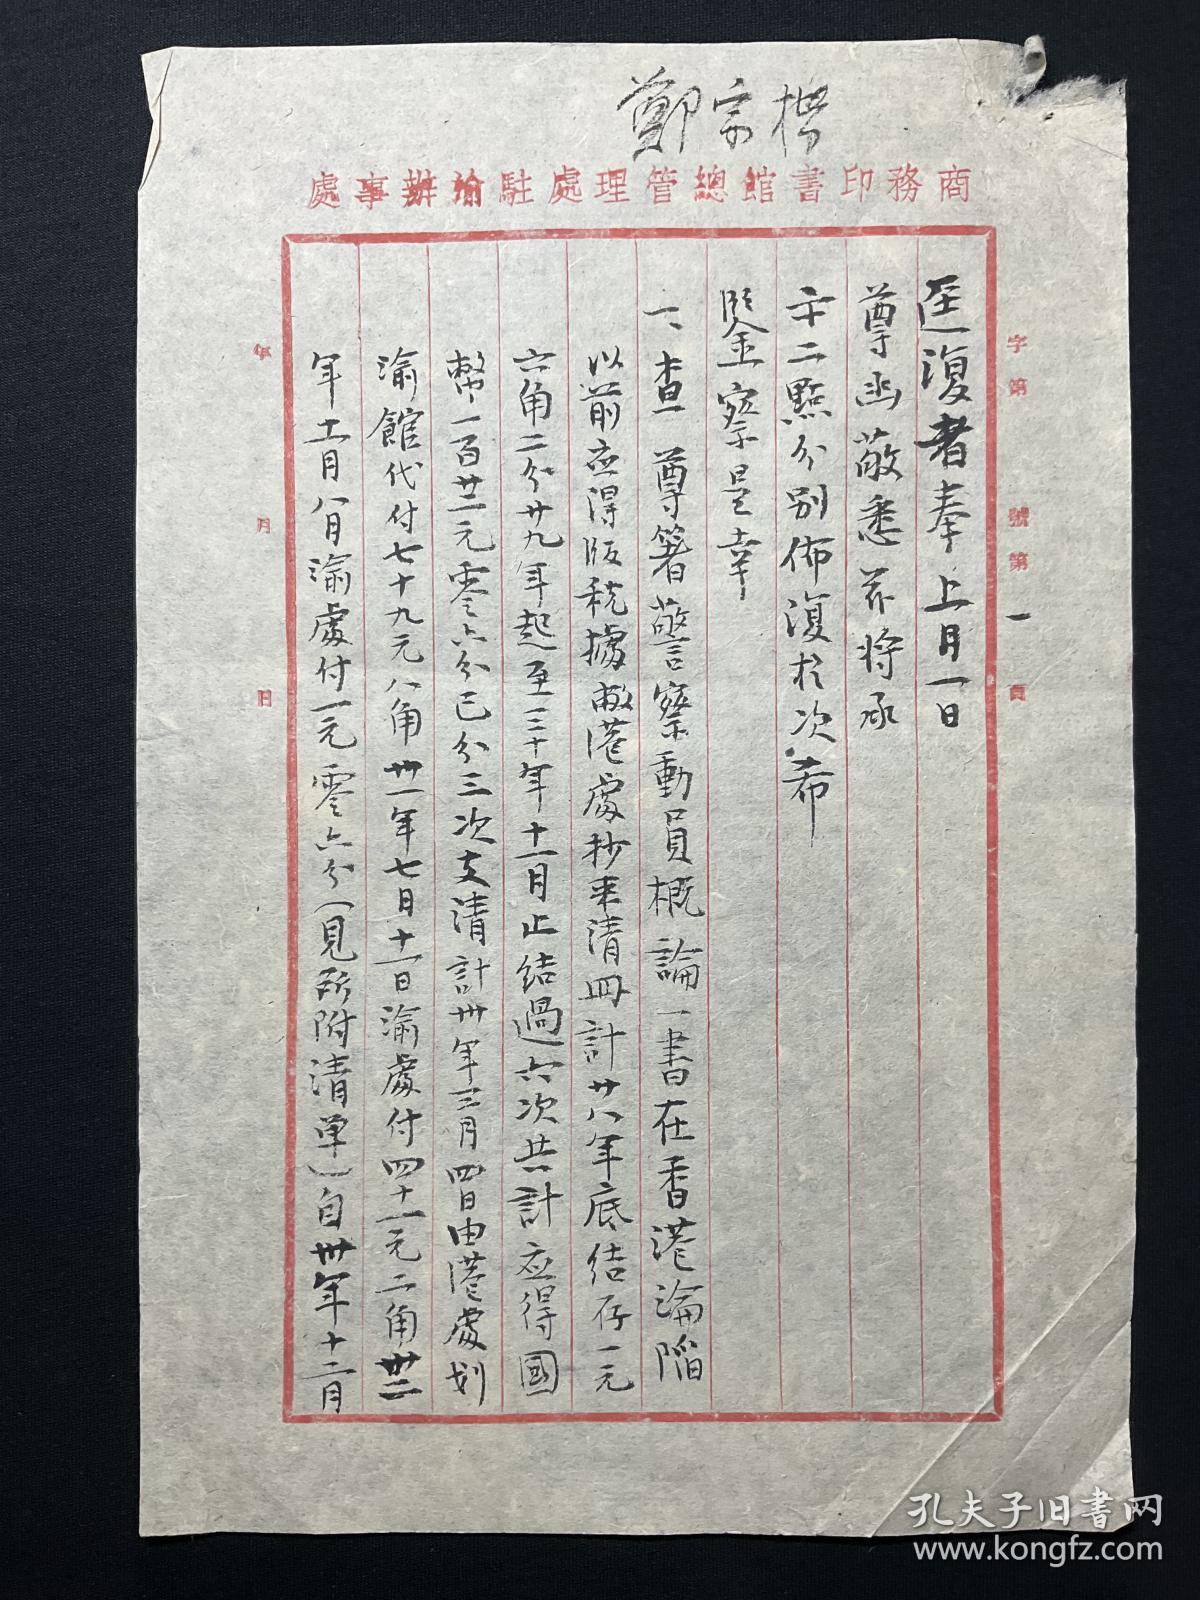 鄭宗楷
商務印書館總管理處駐渝辦事處
字第 號第 一 頁
逕復者奉上月一日
尊函敬悉茲將承
示二點分別佈復於次希
鑒察是幸
一、查 尊著警察動員概論一書在香港淪陷
以前应得版税據敝港處抄来清册計廿八年底结存一元
六角二分廿九年起至三十年十一月止结過六次共計应得國
幣一百廿二元零六分已分三次支清計卅年三月四日由港處划
渝館代付七十九元八角卅一年七月十一日渝處付四十一元二角卅二
年十一月八日渝處付一元零六分(見所附清单)自卅年十二月
年 月 日
孔夫子旧书网
www.kongfz.com